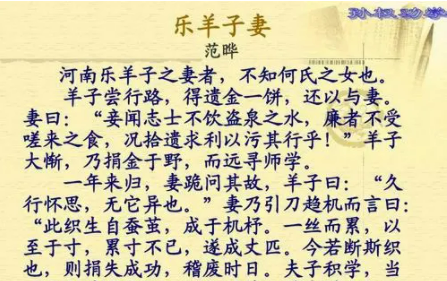 孙权劝学
乐羊子妻
范晔
河南乐羊子之妻者，不知何氏之女也。
羊子尝行路，得遗金一饼，还以与妻。
妻曰：“妾闻志士不饮盗泉之水，廉者不受
嗟来之食，况拾遗求利以污其行乎！”羊子
大惭，乃捐金于野，而远寻师学。
一年来归，妻跪问其故，羊子曰：“久
行怀思，无它异也。”妻乃引刀趋机而言曰：
“此织生自蚕茧，成于机杼。一丝而累，以
至于寸，累寸不已，遂成丈匹。今若断斯织
也，则捐失成功，稽废时日。夫子积学，当